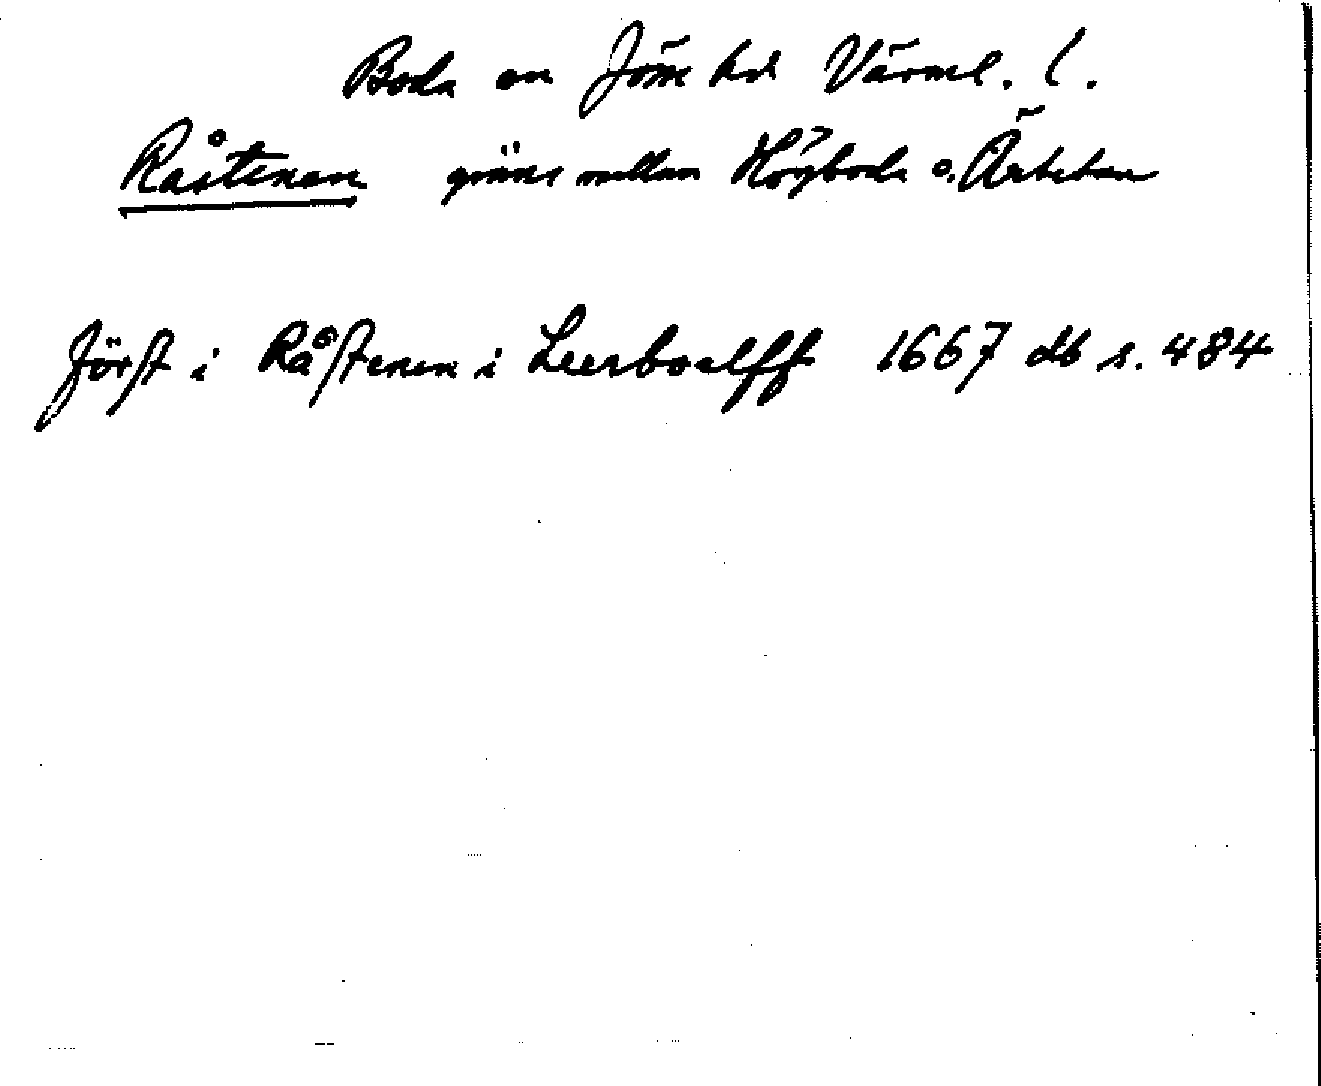 Boda sn Jösse hd Värml. l.
Råstenen gräns mellan Högboda o. Ärtetan
först i Råstenen i Leerboalfft 1667 db s. 484